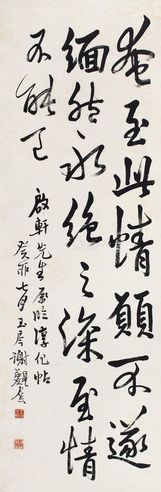 奄至此情願不遂
緬然永絕之深至情
不能已
啟軒先生屬臨淳化帖
癸酉七月玉岑謝覲虞